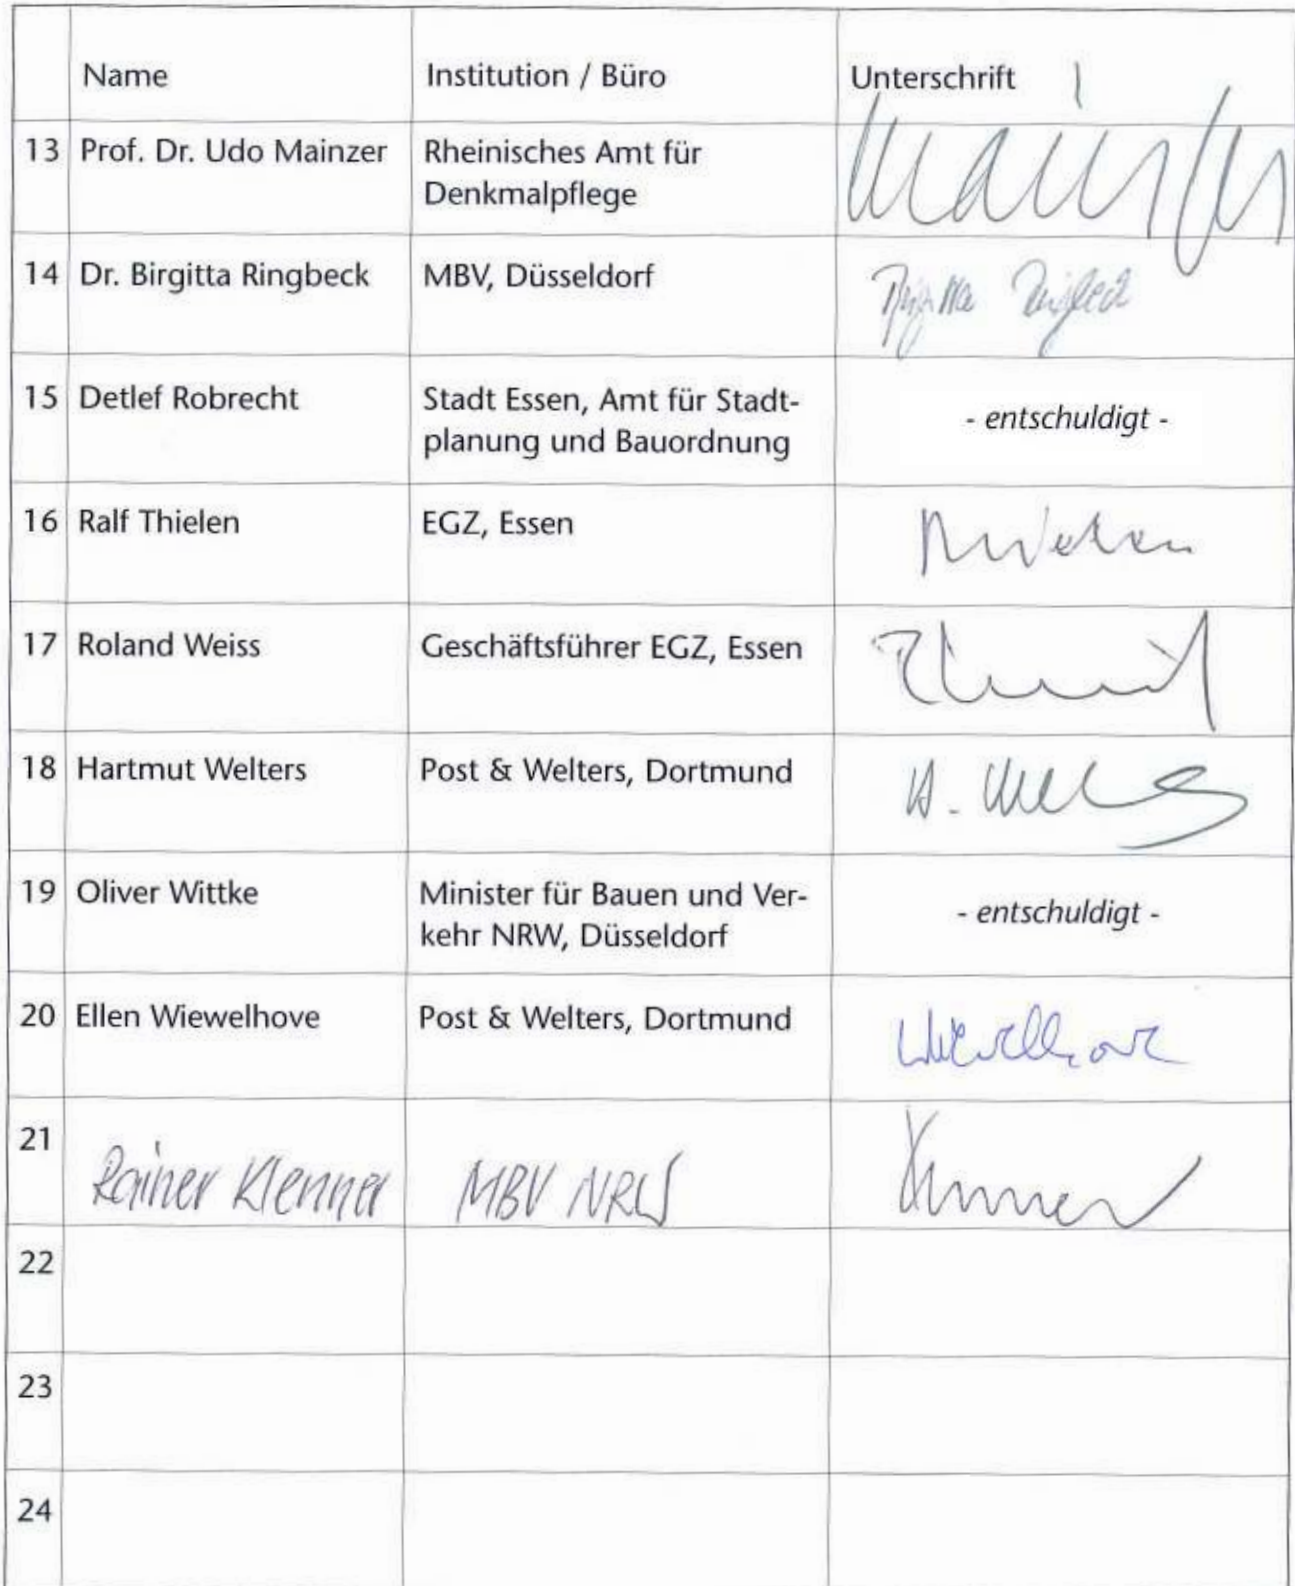 Name Institution / Büro Unterschrift
13 Prof. Dr. Udo Mainzer Rheinisches Amt für
Denkmalpflege Mainzer
14 Dr. Birgitta Ringbeck MBV, Düsseldorf Birgitta Ringbeck
15 Detlef Robrecht Stadt Essen, Amt für Stadt-
planung und Bauordnung - entschuldigt -
16 Ralf Thielen EGZ, Essen
17 Roland Weiss Geschäftsführer EGZ, Essen
18 Hartmut Welters Post & Welters, Dortmund
19 Oliver Wittke Minister für Bauen und Ver-
kehr NRW, Düsseldorf - entschuldigt -
20 Ellen Wiewelhove Post & Welters, Dortmund Wiewelhove
21 Rainer Klenner MBV NRW
22
23
24